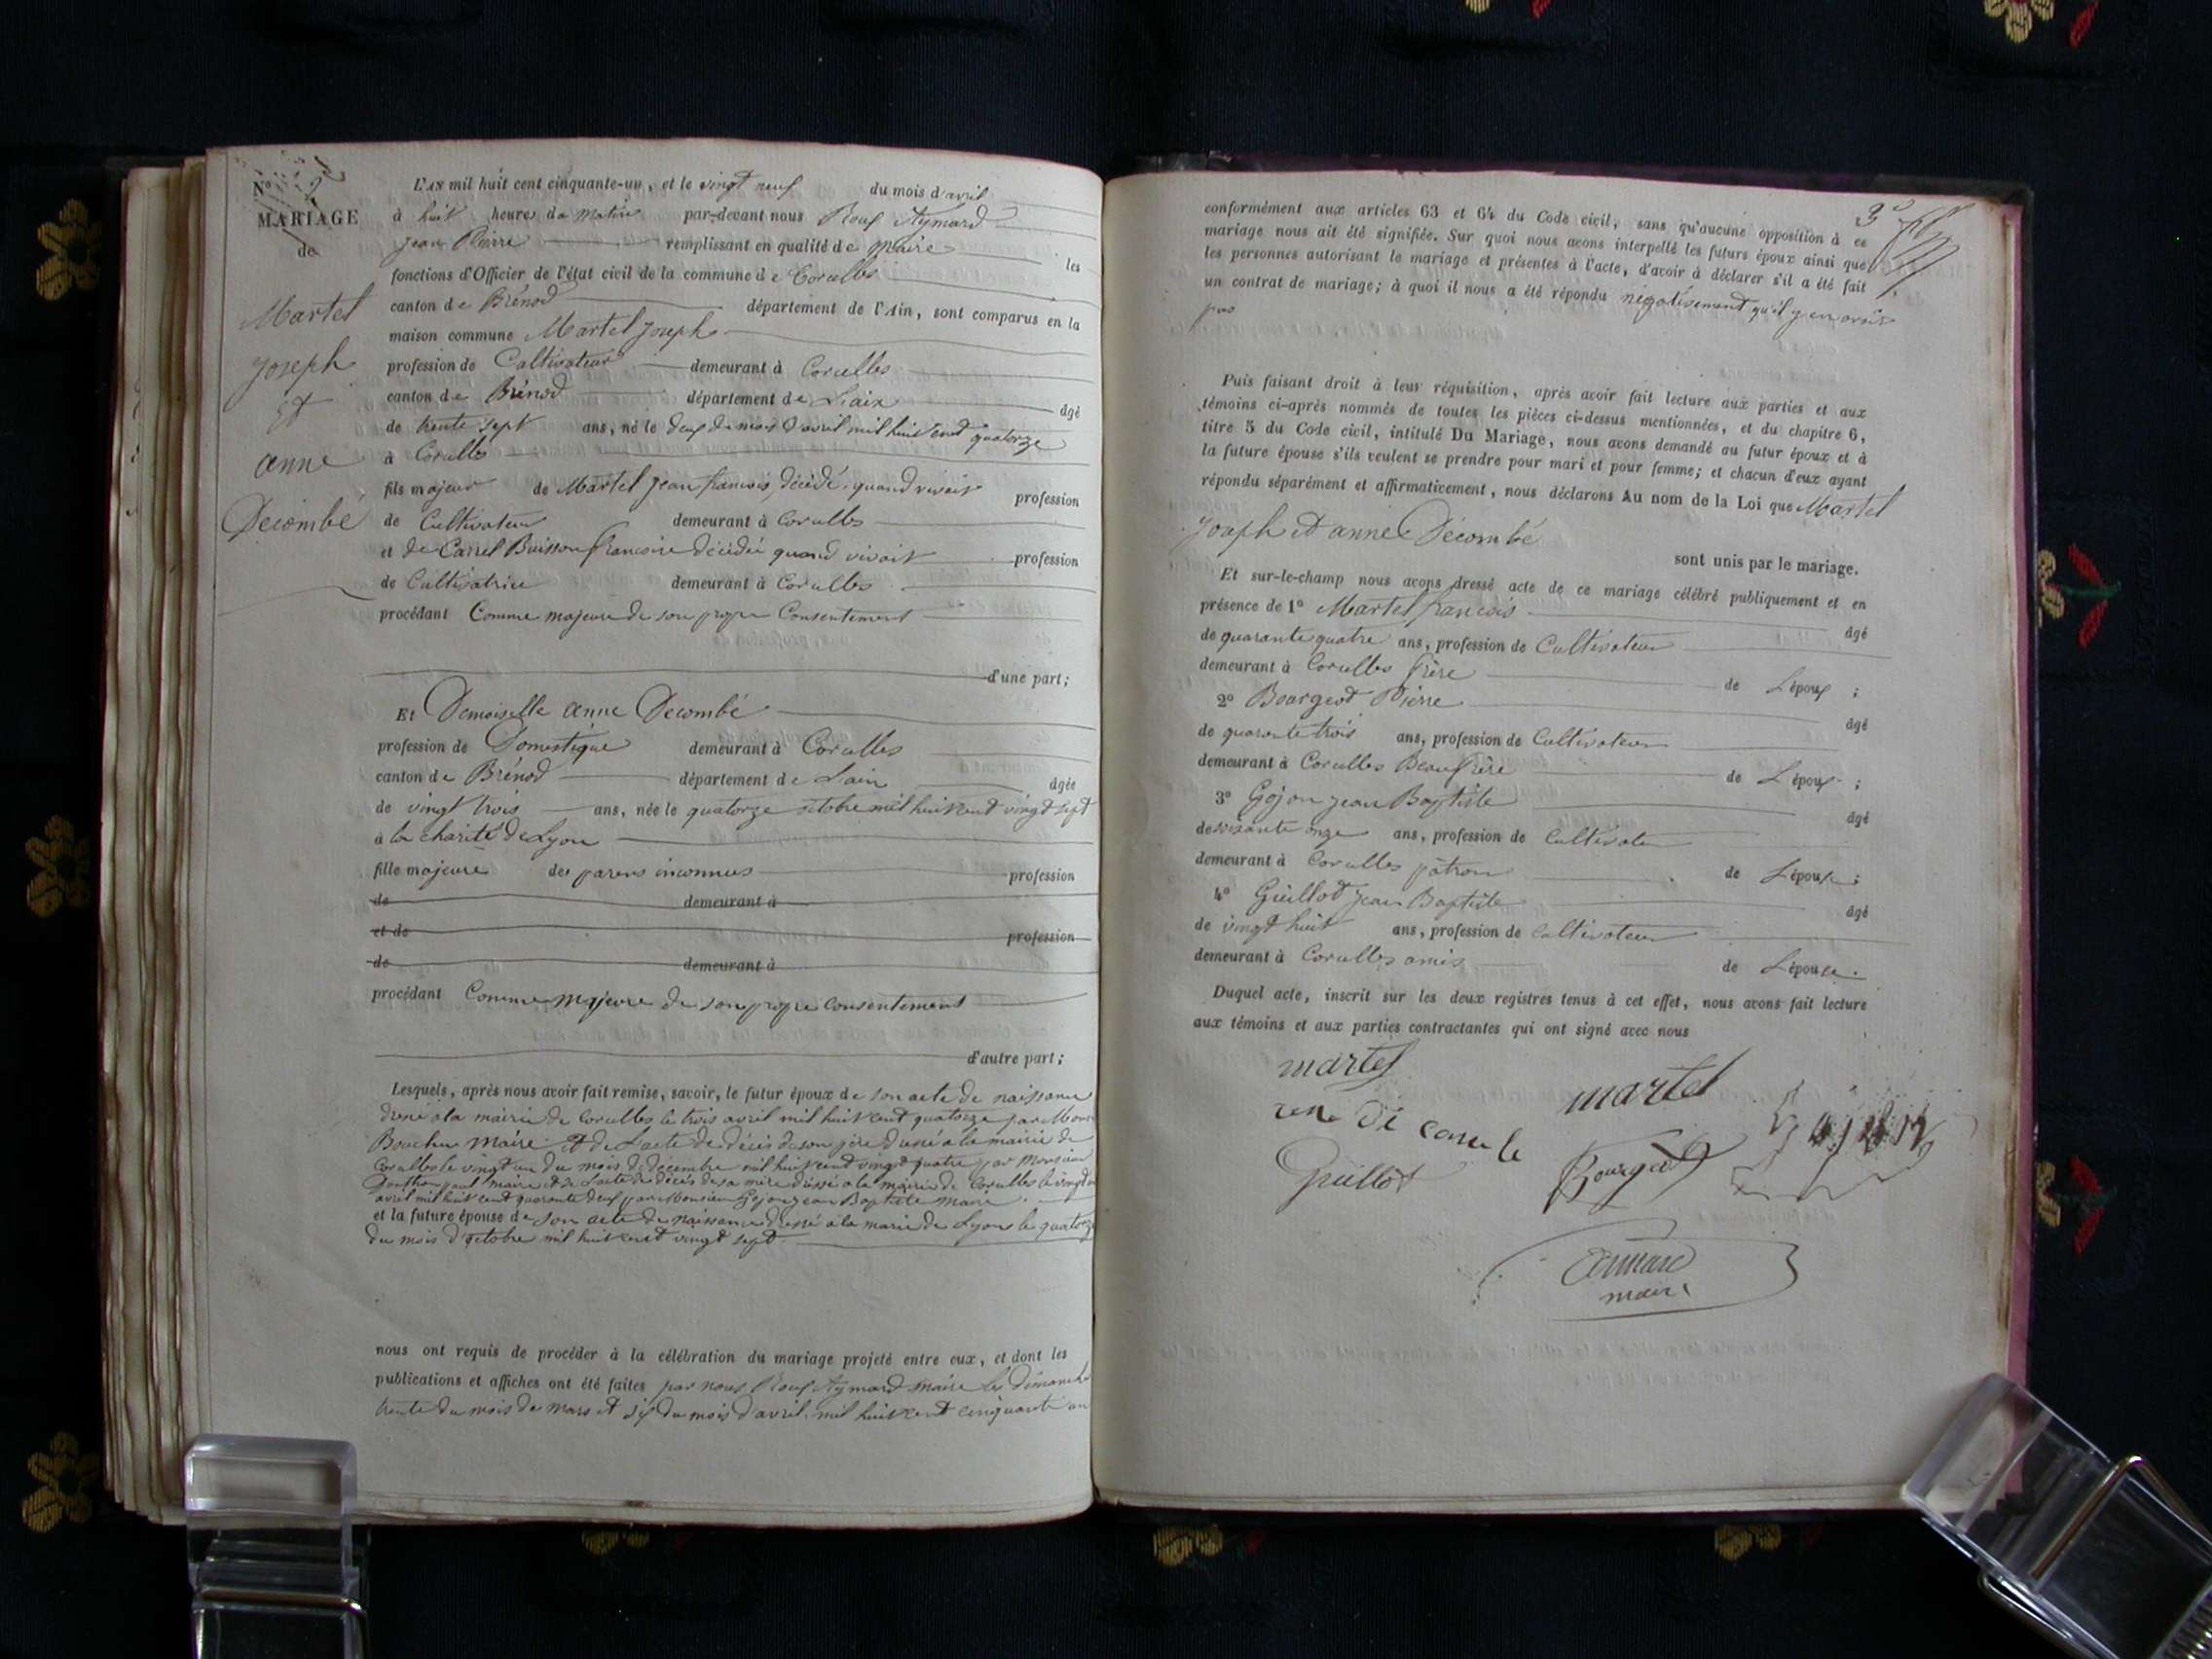 Nº 2
MARIAGE
de
Martel
Joseph
Et
anne
Décombé
L'AN mil huit cent cinquante-un, et le vingt neuf du mois d'avril
à huit heures du matin par-devant nous Roux Aymard
Jean Pierre remplissant en qualité de Maire les
fonctions d'Officier de l'état civil de la commune de Corcelles
canton de Brénod département de l'Ain, sont comparus en la
maison commune Martel Joseph
profession de Cultivateur demeurant à Corcelles
canton de Brénod département de Lain âgé
de trente sept ans, né le deux du mois d'avril mil huit cent quatorze
à Corcelles
fils majeur de Martel Jean francois, décédé, quand vivait profession
de Cultivateur demeurant à Corcelles
et de Carrel Buisson francoise décédée quand vivait profession
de Cultivatrice demeurant à Corcelles
procédant Comme majeure de son propre Consentement
d'une part;
Et Demoiselle anne Décombé
profession de Domestique demeurant à Corcelles
canton de Brénod département de Lain âgée
de vingt trois ans, née le quatorze octobre mil huit cent vingt sept
à la charité de Lyon
fille majeure de parens inconnus profession
de demeurant à
et de profession
de demeurant à
procédant Comme majeure de son propre consentement
d'autre part;
Lesquels, après nous avoir fait remise, savoir, le futur époux de son acte de naissance
dressé à la mairie de Corcelles le trois avril mil huit cent quatorze par
Maire et de Lacte de décès de son père dressé à la mairie de
Corcelles le vingt un du mois de décembre mil huit cent vingt quatre par Monsieur
paul maire et de Lacte de décès de sa mère dressé à la mairie de Corcelles le
avril mil huit cent quarante deux par Monsieur Gojon jean Baptiste maire
et la future épouse de son acte de naissance dressé à la marie de Lyon le quatorze
du mois d'octobre mil huit cent vingt sept
nous ont requis de procéder à la célébration du mariage projeté entre eux, et dont les
publications et affiches ont été faites par nous Roux Aymard Maire les dimanche
trente du mois de mars et six du mois d'avril mil huit cent cinquante un
conformément aux articles 63 et 64 du Code civil, sans qu'aucune opposition à ce
mariage nous ait été signifiée. Sur quoi nous avons interpellé les futurs époux ainsi que
les personnes autorisant le mariage et présentes à l'acte, d'avoir à déclarer s'il a été fait
un contrat de mariage; à quoi il nous a été répondu négativement qu'il y en avoit
pas
Puis faisant droit à leur réquisition, après avoir fait lecture aux parties et aux
témoins ci-après nommés de toutes les pièces ci-dessus mentionnées, et du chapitre 6,
titre 5 du Code civil, intitulé Du Mariage, nous avons demandé au futur époux et à
la future épouse s'ils veulent se prendre pour mari et pour femme; et chacun d'eux ayant
répondu séparément et affirmativement, nous déclarons Au nom de la Loi que Martel
Joseph et anne Décombé
sont unis par le mariage.
Et sur-le-champ nous avons dressé acte de ce mariage célébré publiquement et en
présence de 1º Martel francois âgé
de quarante quatre ans, profession de Cultivateur
demeurant à Corcelles frère de Lépoux ;
2º Bourgeot Pierre âgé
de quarante trois ans, profession de Cultivateur
demeurant à Corcelles Beaufrère de Lépoux ;
3º Gojon jean Baptiste âgé
de soixante onze ans, profession de Cultivateur
demeurant à Corcelles patron de Lépouse;
4º Guillot jean Baptiste âgé
de vingt huit ans, profession de Cultivateur
demeurant à Corcelles amis de Lépouse.
Duquel acte, inscrit sur les deux registres tenus à cet effet, nous avons fait lecture
aux témoins et aux parties contractantes qui ont signé avec nous
martel
martel
Guillot
Bourgeot
maire